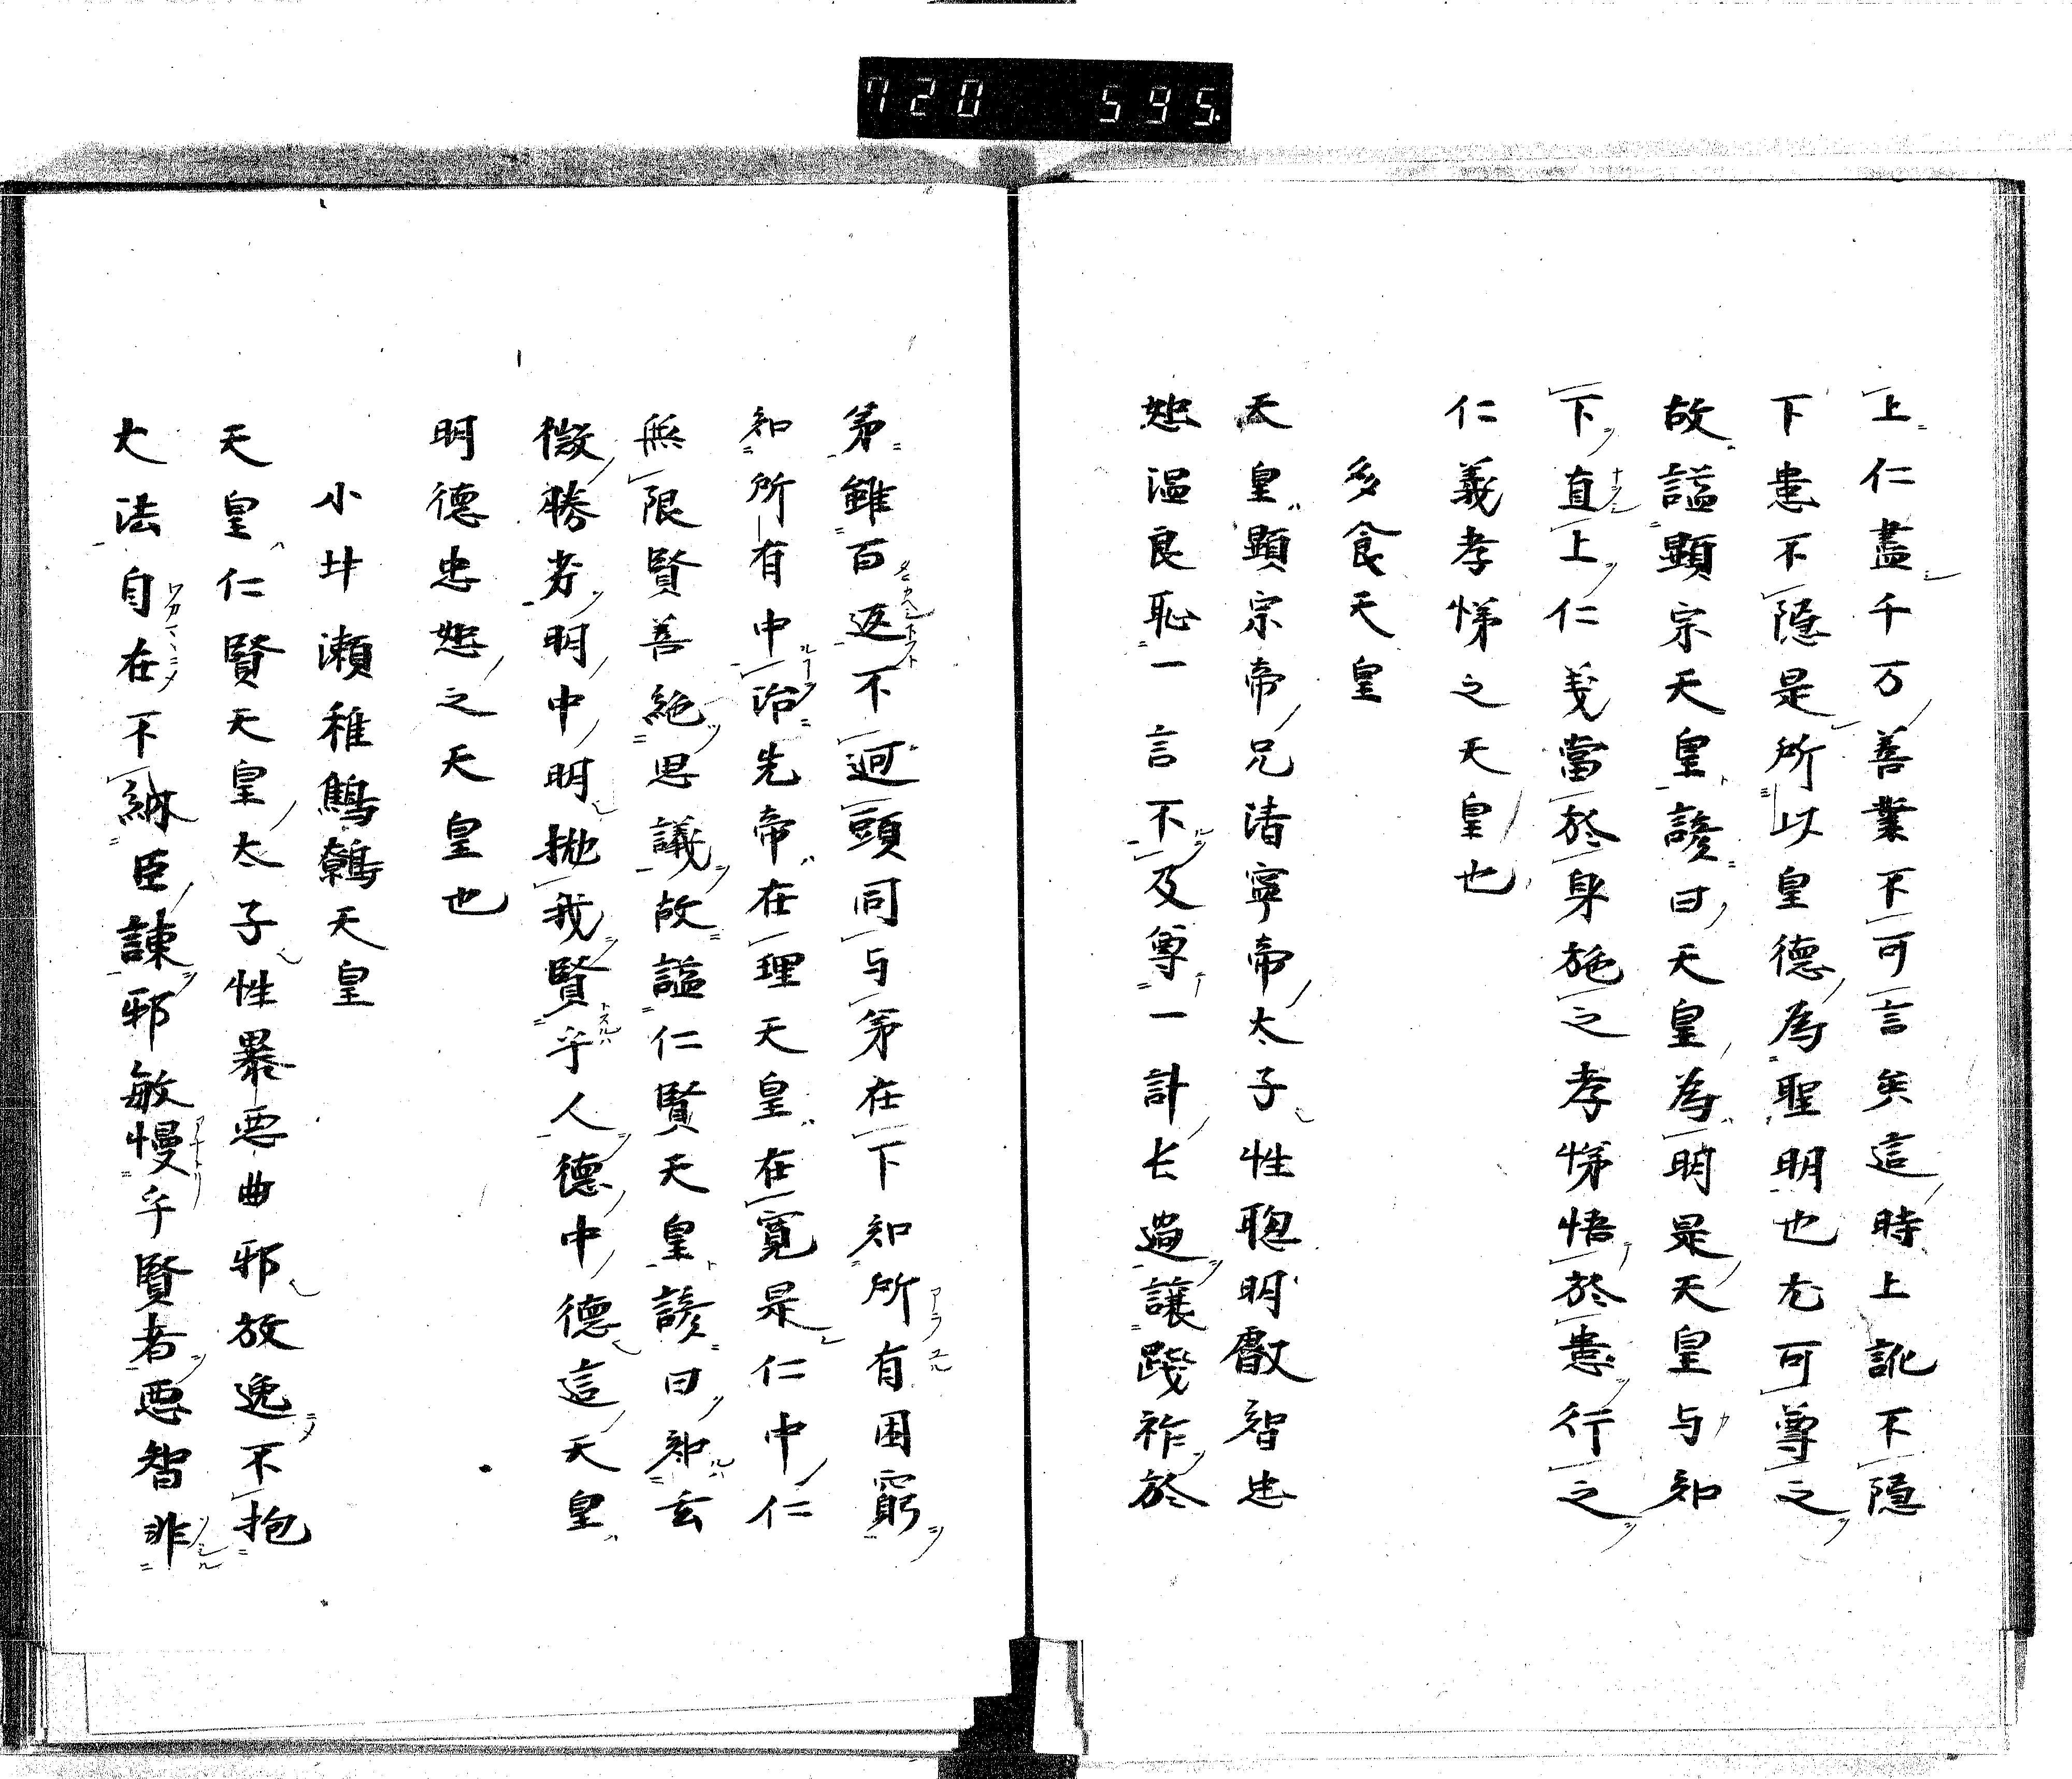 720 595.
上仁盡千万善業不可言矣這時上訛不隱
下恚不隱是所以皇德為聖明也尤可尊之
故謚顯宗天皇諺曰天皇為明是天皇与知
下直上仁義當於身施之孝悌悟於恚行之
仁義孝悌之天皇也
多食天皇
天皇顯宗帝兄清寧帝太子性聰明叡智忠
恕温良恥一言不及尊一計長遊讓踐祚於
弟雖百返不迴頭同与弟在下知所有困窮
知所有中治先帝在理天皇在寛是仁中仁
無限賢善絶思議故謚仁賢天皇諺曰知玄
微勝労明中明拋我賢乎人德中德這天皇
明德忠恕之天皇也
小井瀬稚鷦鷯天皇
天皇仁賢天皇太子性暴悪曲邪放逸不抱
大法自在不納臣諫邪敏慢乎賢者悪智非